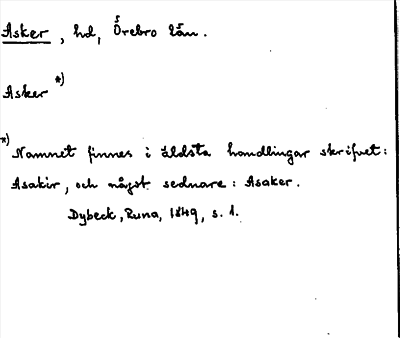 Asker, hd, Örebro län.
Asker *)
*) Namnet finnes i äldsta handlingar skrifvet:
Asakir, och något sednare: Asaker.
Dybeck, Runa, 1849, s. 1.